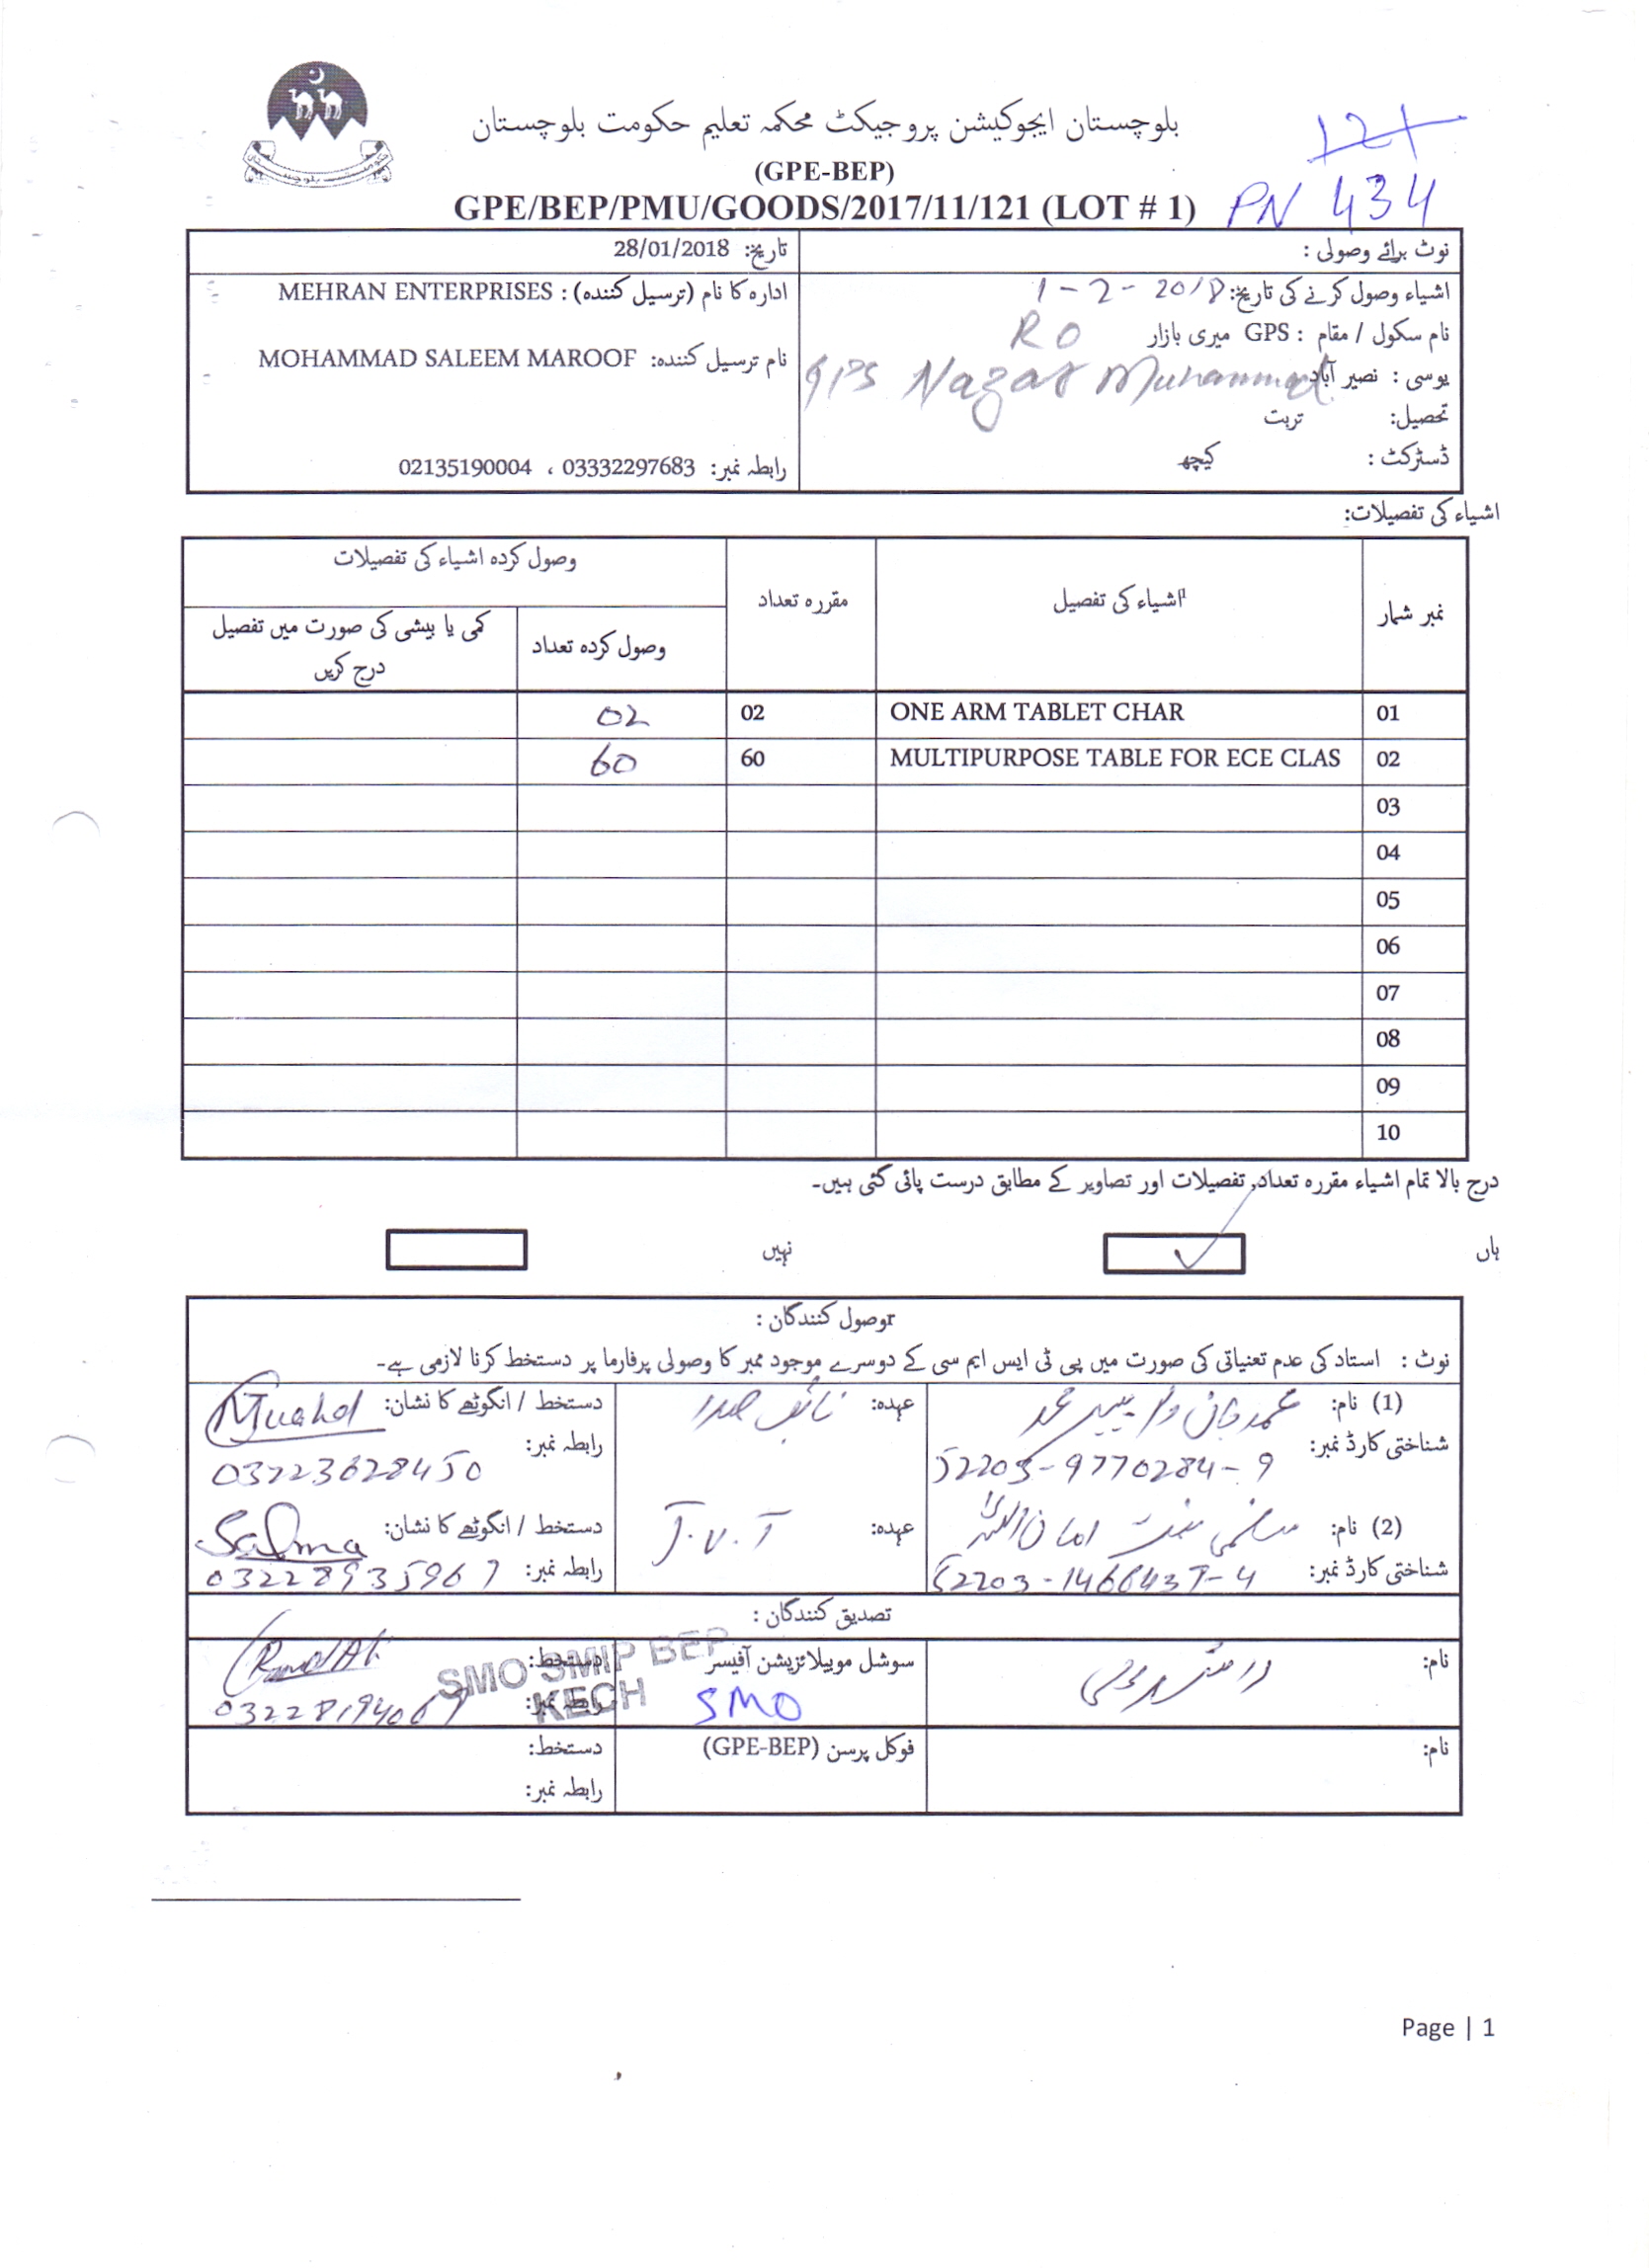 بلوچستان ایجوکیشن پروجیکٹ محکمہ تعلیم حکومت بلوچستان
121
(GPE-BEP)
GPE/BEP/PMU/GOODS/2017/11/121 (LOT # 1) PN 434
نوٹ برائے وصولی :
تاریخ: 28/01/2018
اشیاء وصول کرنے کی تاریخ: 1-2-2018
ادارہ کا نام (ترسیل کنندہ) : MEHRAN ENTERPRISES
نام سکول / مقام : GPS میری بازار R O
نام ترسیل کنندہ: MOHAMMAD SALEEM MAROOF
یوسی : نصیر آباد GPS Nazar Muhammad
تحصیل: تربت
ڈسٹرکٹ : کیچ
رابطہ نمبر: 03332297683 ، 02135190004
اشیاء کی تفصیلات:
نمبر شمار اشیاء کی تفصیل مقررہ تعداد وصول کردہ اشیاء کی تفصیلات
وصول کردہ تعداد کمی یا بیشی کی صورت میں تفصیل درج کریں
01 ONE ARM TABLET CHAR 02 02
02 MULTIPURPOSE TABLE FOR ECE CLAS 60 60
03
04
05
06
07
08
09
10
درج بالا تمام اشیاء مقررہ تعداد, تفصیلات اور تصاویر کے مطابق درست پائی گئی ہیں۔
ہاں ✓ نہیں
وصول کنندگان :
نوٹ : استاد کی عدم تعنیاتی کی صورت میں پی ٹی ایس ایم سی کے دوسرے موجود ممبر کا وصولی پرفارما پر دستخط کرنا لازمی ہے۔
(1) نام: محمد جان ولد پیر محمد عہدہ: نائب صدر دستخط / انگوٹھے کا نشان:
شناختی کارڈ نمبر: 52203-9770284-9 رابطہ نمبر: 03223628450
(2) نام: سلمی بنت امان اللہ عہدہ: J.V.T دستخط / انگوٹھے کا نشان: Salma
شناختی کارڈ نمبر: 52203-1466437-4 رابطہ نمبر: 03228935967
تصدیق کنندگان :
نام: سوشل موبیلائزیشن آفیسر دستخط:
SMO رابطہ نمبر: 03228194069
SMO SMIP BEP
KECH
نام: فوکل پرسن (GPE-BEP) دستخط:
رابطہ نمبر:
Page | 1